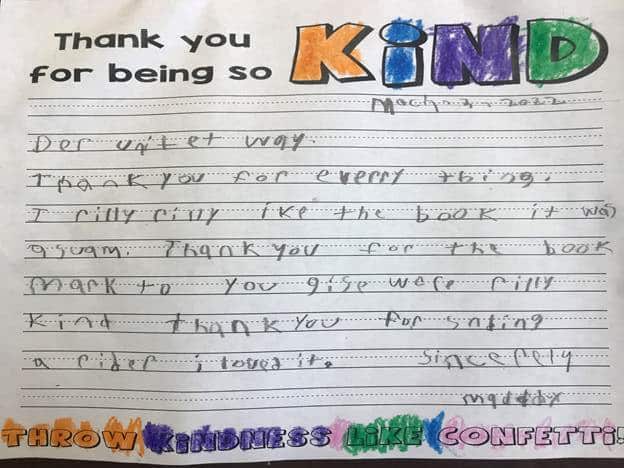 Thank you
for being so KiND
Mach 2, 2022
Der unitet way.
Thank you for everry thing.
I rilly rilly like the book it was
asuam. Thank you for the book
mark to you gise were rilly
kind thank you for snding
a rider i loved it. sincerely
maddox
THROW KiNDNESS LiKE CONFETTi!